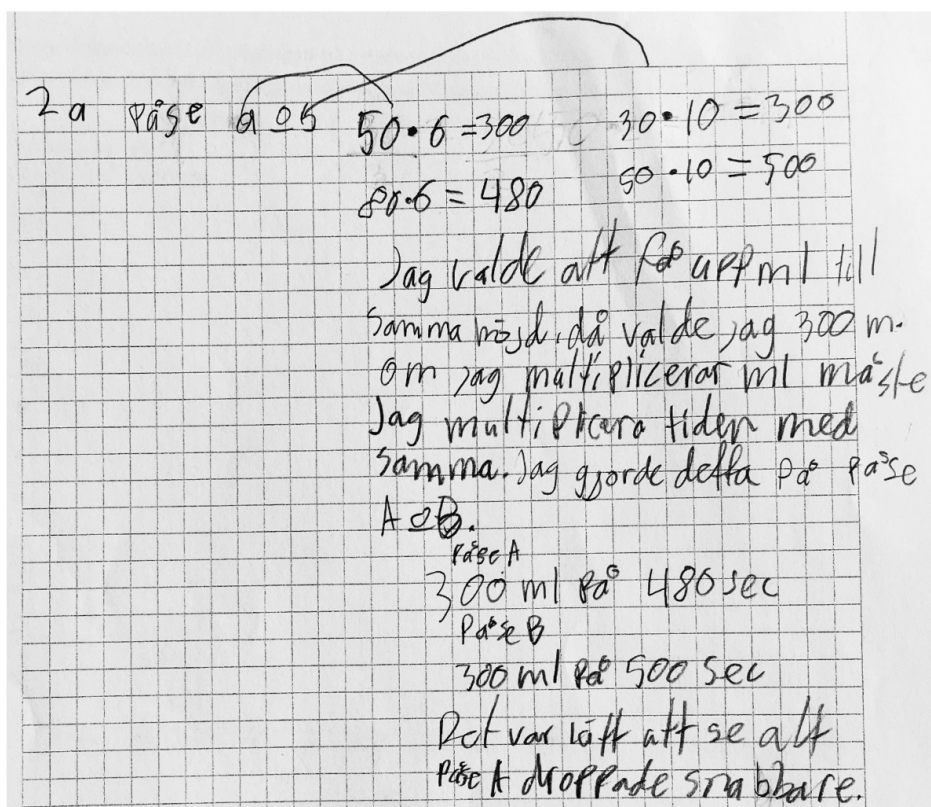 2a påse a o b 50·6=300 30·10=300
80·6=480 50·10=500
Jag valde att få upp ml till
samma höjd, då valde jag 300 m.
Om jag multiplicerar ml måste
Jag multiplicera tiden med
samma. Jag gjorde detta på påse
A o B.
Påse A
300 ml på 480 sec
Påse B
300 ml på 500 sec
Det var lätt att se att
Påse A droppade snabbare.